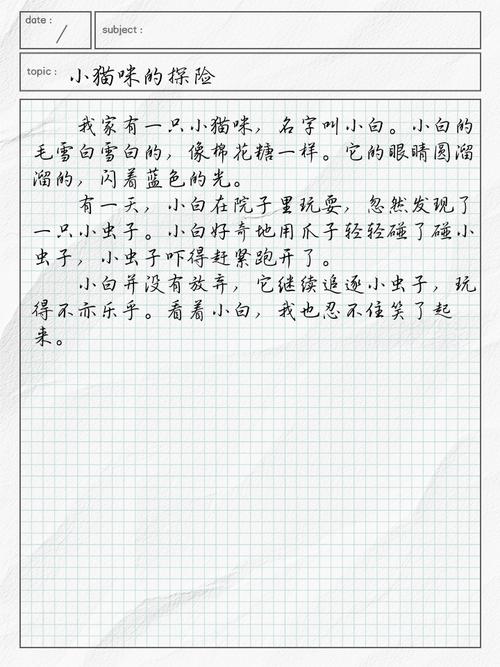 date :
/
subject :
topic : 小猫咪的探险
我家有一只小猫咪，名字叫小白。小白的
毛雪白雪白的，像棉花糖一样。它的眼睛圆溜
溜的，闪着蓝色的光。
有一天，小白在院子里玩耍，忽然发现了
一只小虫子。小白好奇地用爪子轻轻碰了碰小
虫子，小虫子吓得赶紧跑开了。
小白并没有放弃，它继续追逐小虫子，玩
得不亦乐乎。看着小白，我也忍不住笑了起
来。